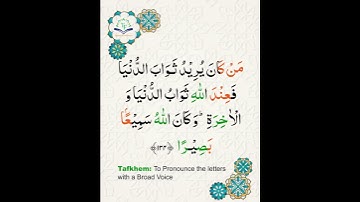 مَنْ كَانَ يُرِيْدُ ثَوَابَ الدُّنْيَا
فَعِنْدَ اللّٰهِ ثَوَابُ الدُّنْيَا وَ
الْاٰخِرَةِ ؕ وَ كَانَ اللّٰهُ سَمِيْعًۢا
بَصِيْرًا ﴿۱۳۴﴾
Tafkhem: To Pronounce the letters
with a Broad Voice